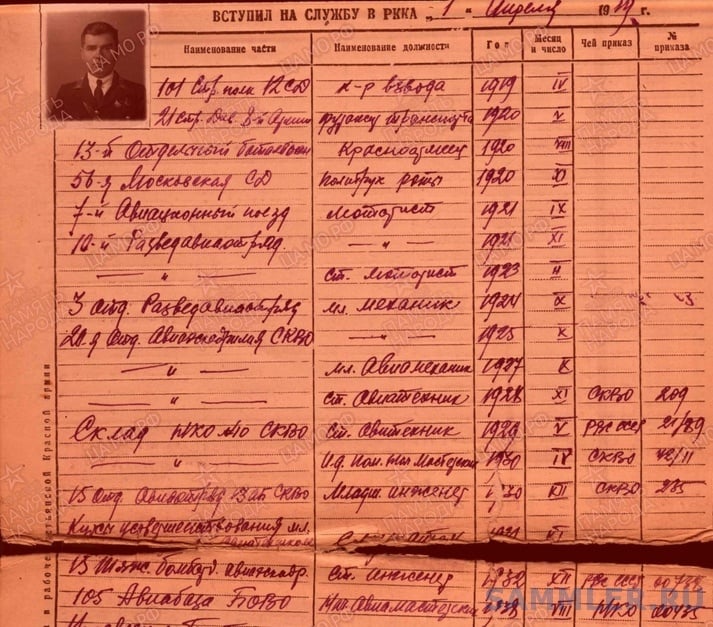 ВСТУПИЛ НА СЛУЖБУ В РККА „1“ Апреля 1919 г.
Наименование части Наименование должности Год Месяц и число Чей приказ № приказа
101 Стр. полк 12 СД к-р взвода 1919 IV
21 Стр. Див. 8-й Армии 1920 V
13-й Отдельный батальон Красноармеец 1920 VIII
56-я Московская СД Политрук роты 1920 XI
7-й Авиационный поезд Моторист 1921 IX
10-й Разведавиаотряд — " — 1921 XI
— " — ст. моторист 1923 II
3 отд. Разведавиаотряд мл. механик 1924 X
20-я отд. Авиаэскадрилья СКВО — " — 1925 X
— " — мл. Авиамеханик 1927 X
— " — ст. Авиатехник 1928 XI СКВО 209
Склад СКВО ст. Авитехник 1929 V РВС СССР 21/89
— " — И.д. Пом. Мастерских 1930 IV СКВО 72/11
15 отд. СКВО Младш. инженер 1930 XII СКВО 235
Курсы усовершенствования мл.
авиатехников 1931 VI
15 Тяж. бомбард. авиаэскадр. Ст. инженер 1932 XII РВС СССР
105 Авиабаза БОВО Авиамастерских VIII НКО
в рабоче
стьянской Красной армии
ЦАМО РФ
ПАМЯТЬ НАРОДА
SAMMLER.RU